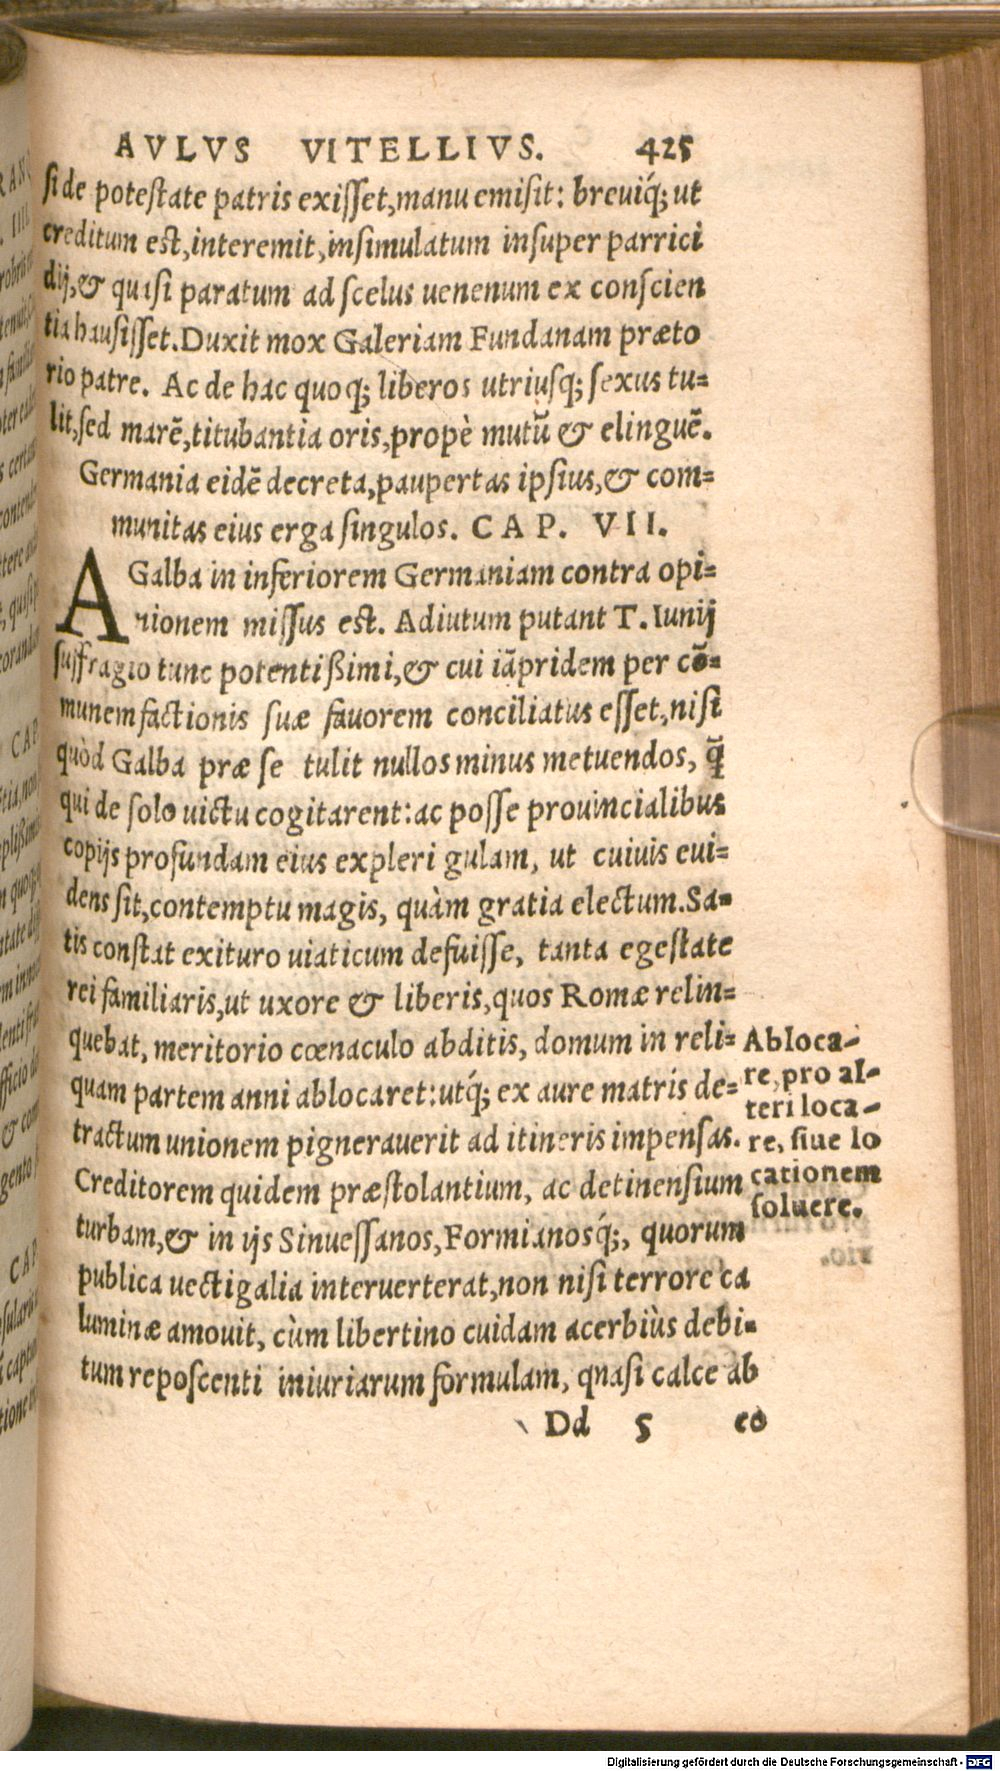 AVLVS VITELLIVS. 425
ſi de poteſtate patris exiſſet, manu emiſit: breuiq́; ut
creditum est, interemit, inſimulatum inſuper parrici
dij, & quaſi paratum ad ſcelus uenenum ex conſcien
tia hauſiſſet. Duxit mox Galeriam Fundanam præto
rio patre. Ac de hac quoq; liberos utriuſq; ſexus tu=
lit, ſed marẽ, titubantia oris, propè mutũ & elinguẽ.
Germania eidẽ decreta, paupertas ipſius, & com=
munitas eius erga ſingulos. CAP. VII.
A Galba in inferiorem Germaniam contra opi=
nionem miſſus est. Adiutum putant T. Iunij
ſuffragio tunc potentißimi, & cui iãpridem per cõ=
munem factionis ſuæ fauorem conciliatus eſſet, niſi
quòd Galba præ ſe tulit nullos minus metuendos, q̃
qui de ſolo uictu cogitarent: ac poſſe prouincialibus
copijs profundam eius expleri gulam, ut cuiuis eui=
dens ſit, contemptu magis, quàm gratia electum. Sa=
tis conſtat exituro uiaticum defuiſſe, tanta egeſtate
rei familiaris, ut uxore & liberis, quos Romæ relin=
quebat, meritorio cœnaculo abditis, domum in reli=
quam partem anni ablocaret: utq́; ex aure matris de=
tractum unionem pignerauerit ad itineris impenſas.
Creditorem quidem præſtolantium, ac detinenſium
turbam, & in ijs Sinueſſanos, Formianosq́;, quorum
publica uectigalia interuerterat, non niſi terrore ca
luminæ amouit, cùm libertino cuidam acerbiùs debi=
tum repoſcenti iniuriarum formulam, quaſi calce ab
Dd 5 eo
Abloca-
re, pro al-
teri loca-
re, ſiue lo
cationem
ſoluere.
Digitalisierung gefördert durch die Deutsche Forschungsgemeinschaft - DFG